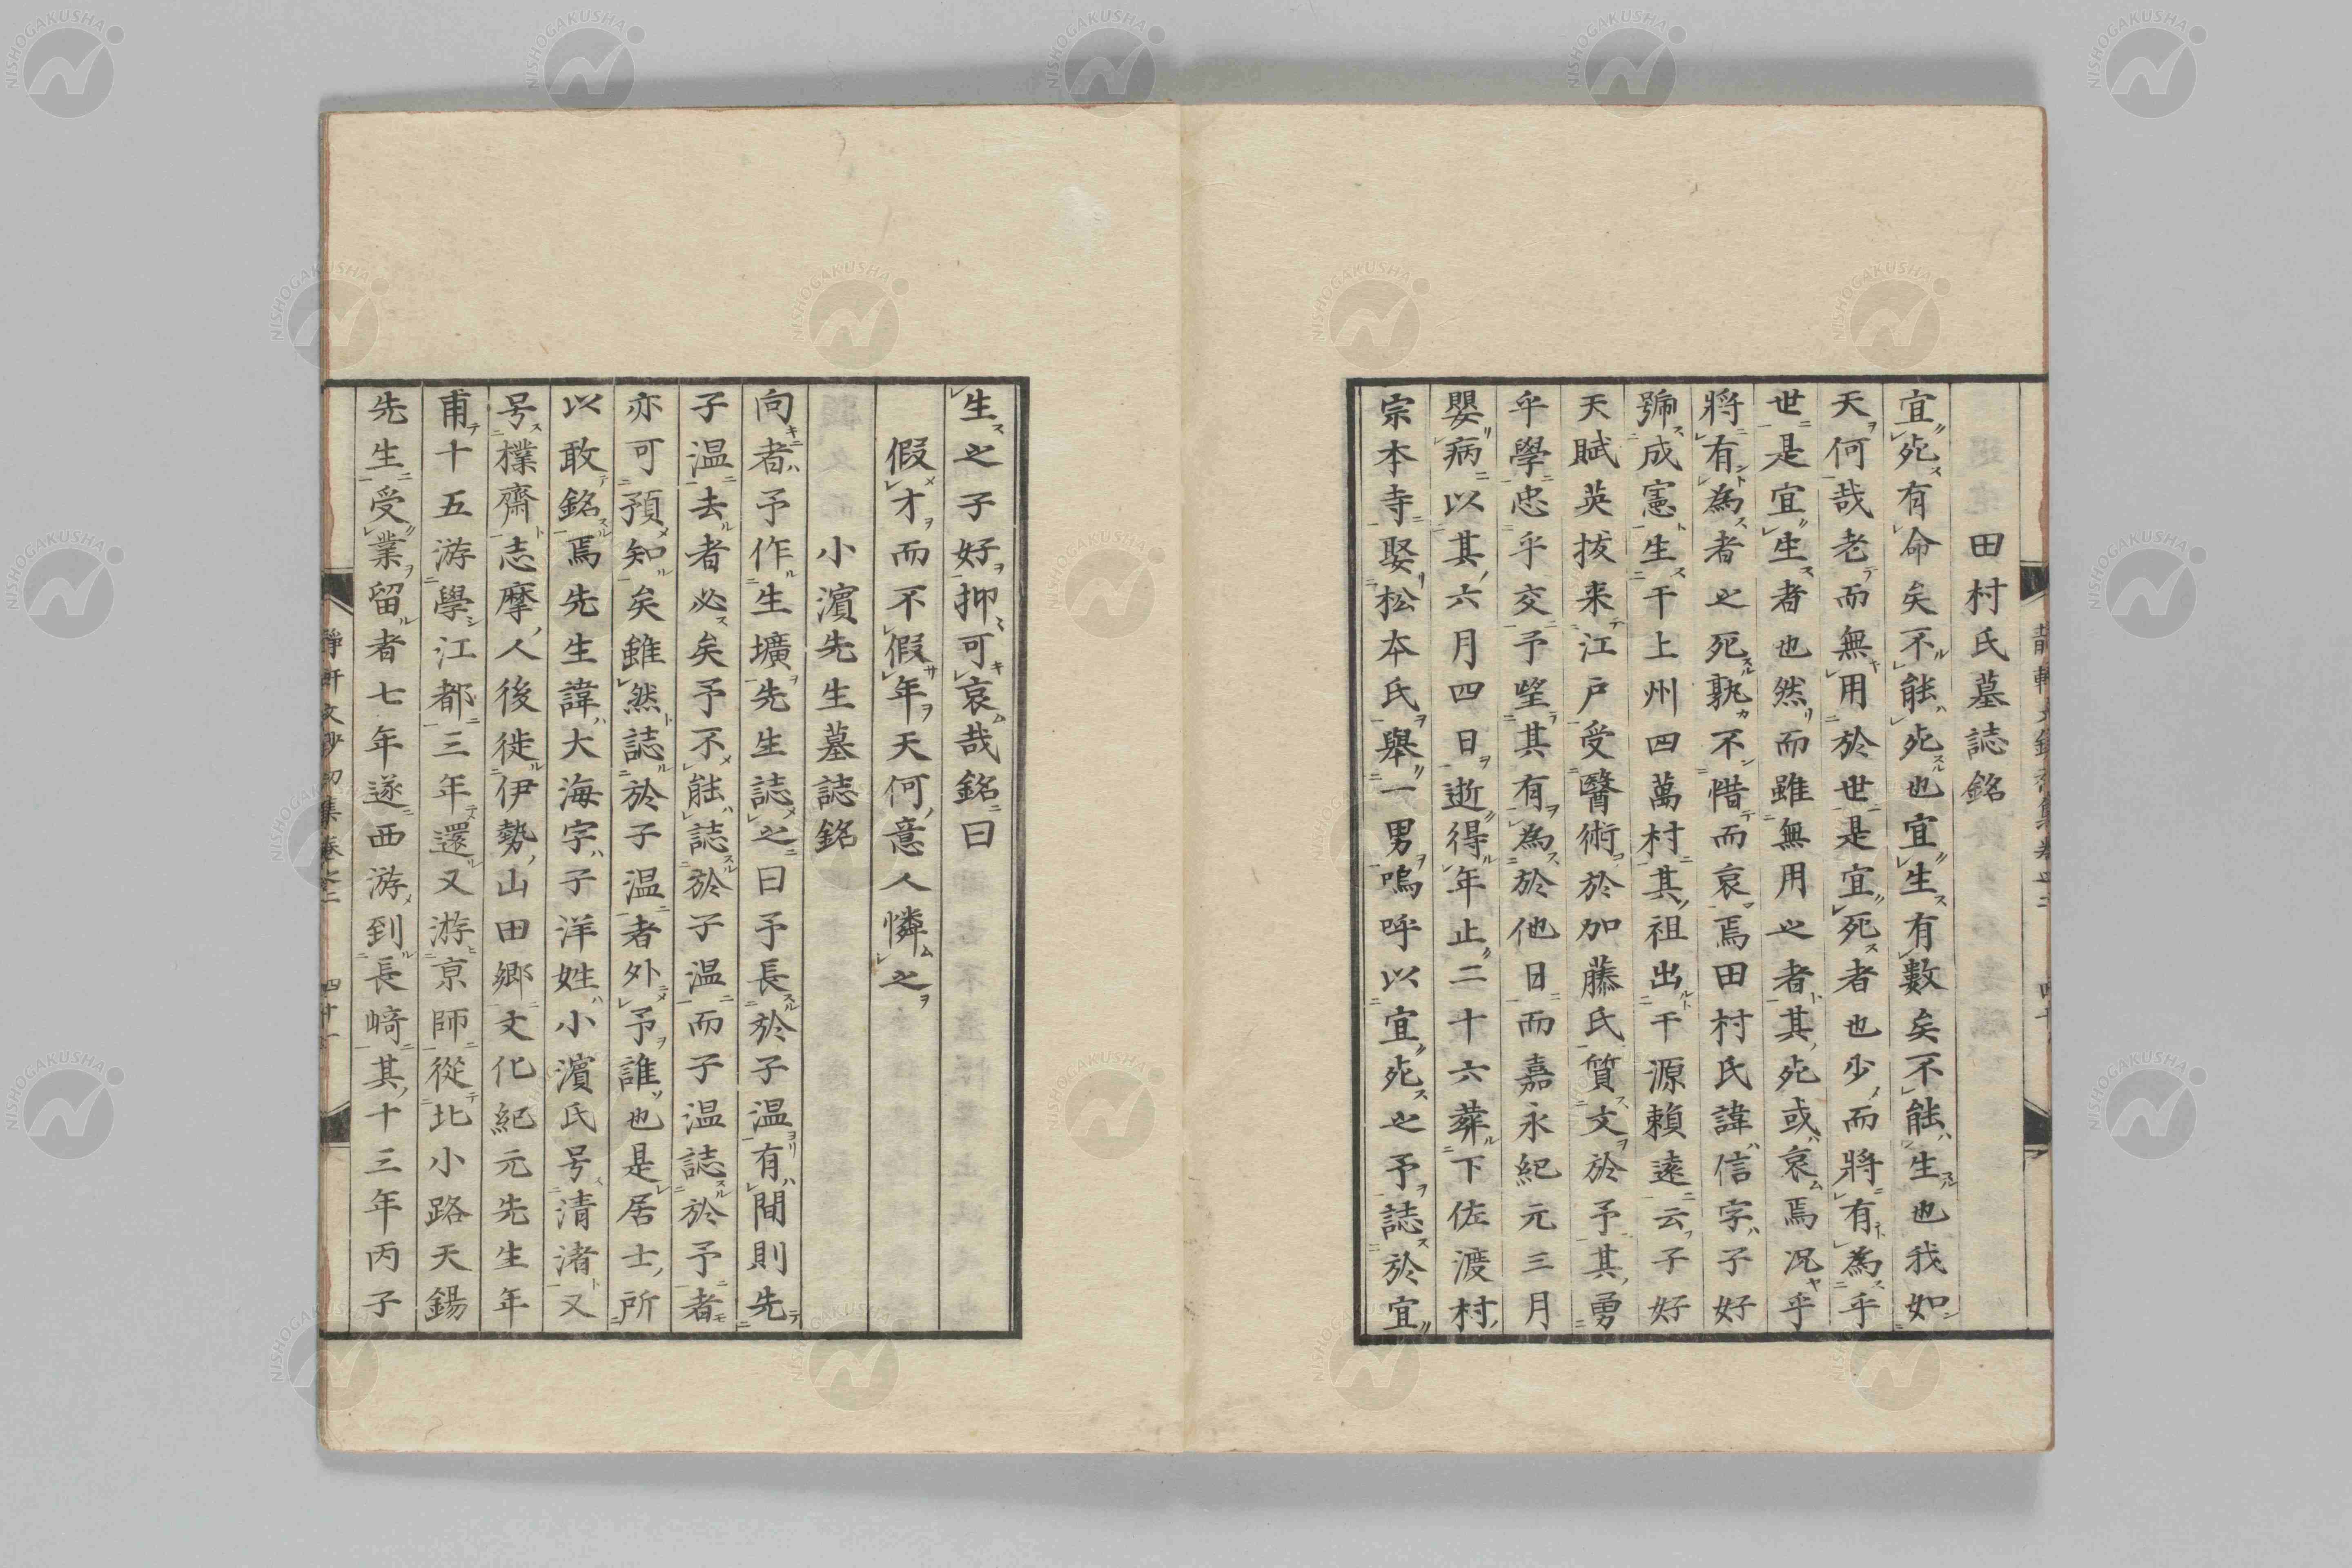 田村氏墓誌銘
宜死有命矣不能死也宜生有數矣不能生也我如
天何哉老而無用於世是宜死者也少而將有為乎
世是宜生者也然而雖無用之者其死或哀焉况乎
將有為者之死孰不惜而哀焉田村氏諱信字子好
號成憲生干上州四萬村其祖出干源賴遠云子好
天賦英拔来江戸受醫術於加藤氏質文於予其勇
乎學忠乎交予望其有為於他日而嘉永紀元三月
嬰病以其六月四日逝得年止二十六葬下佐渡村
宗本寺娶松本氏舉一男嗚呼以宜死之予誌於宜
生之子好抑可哀哉銘曰
假才而不假年天何意人憐之
小濵先生墓誌銘
向者予作生壙先生誌之曰予長於子温有間則先
子温去者必矣予不能誌於子温而子温誌於予者
亦可預知矣雖然誌於子温者外予誰也是居士所
以敢銘焉先生諱大海字子洋姓小濵氏号清渚又
号樸齋志摩人後徙伊勢山田郷文化紀元先生年
甫十五游學江都三年還又游京師從北小路天錫
先生受業留者七年遂西游到長﨑其十三年丙子
静軒文鈔初集卷之二 四十一
NISHOGAKUSHA